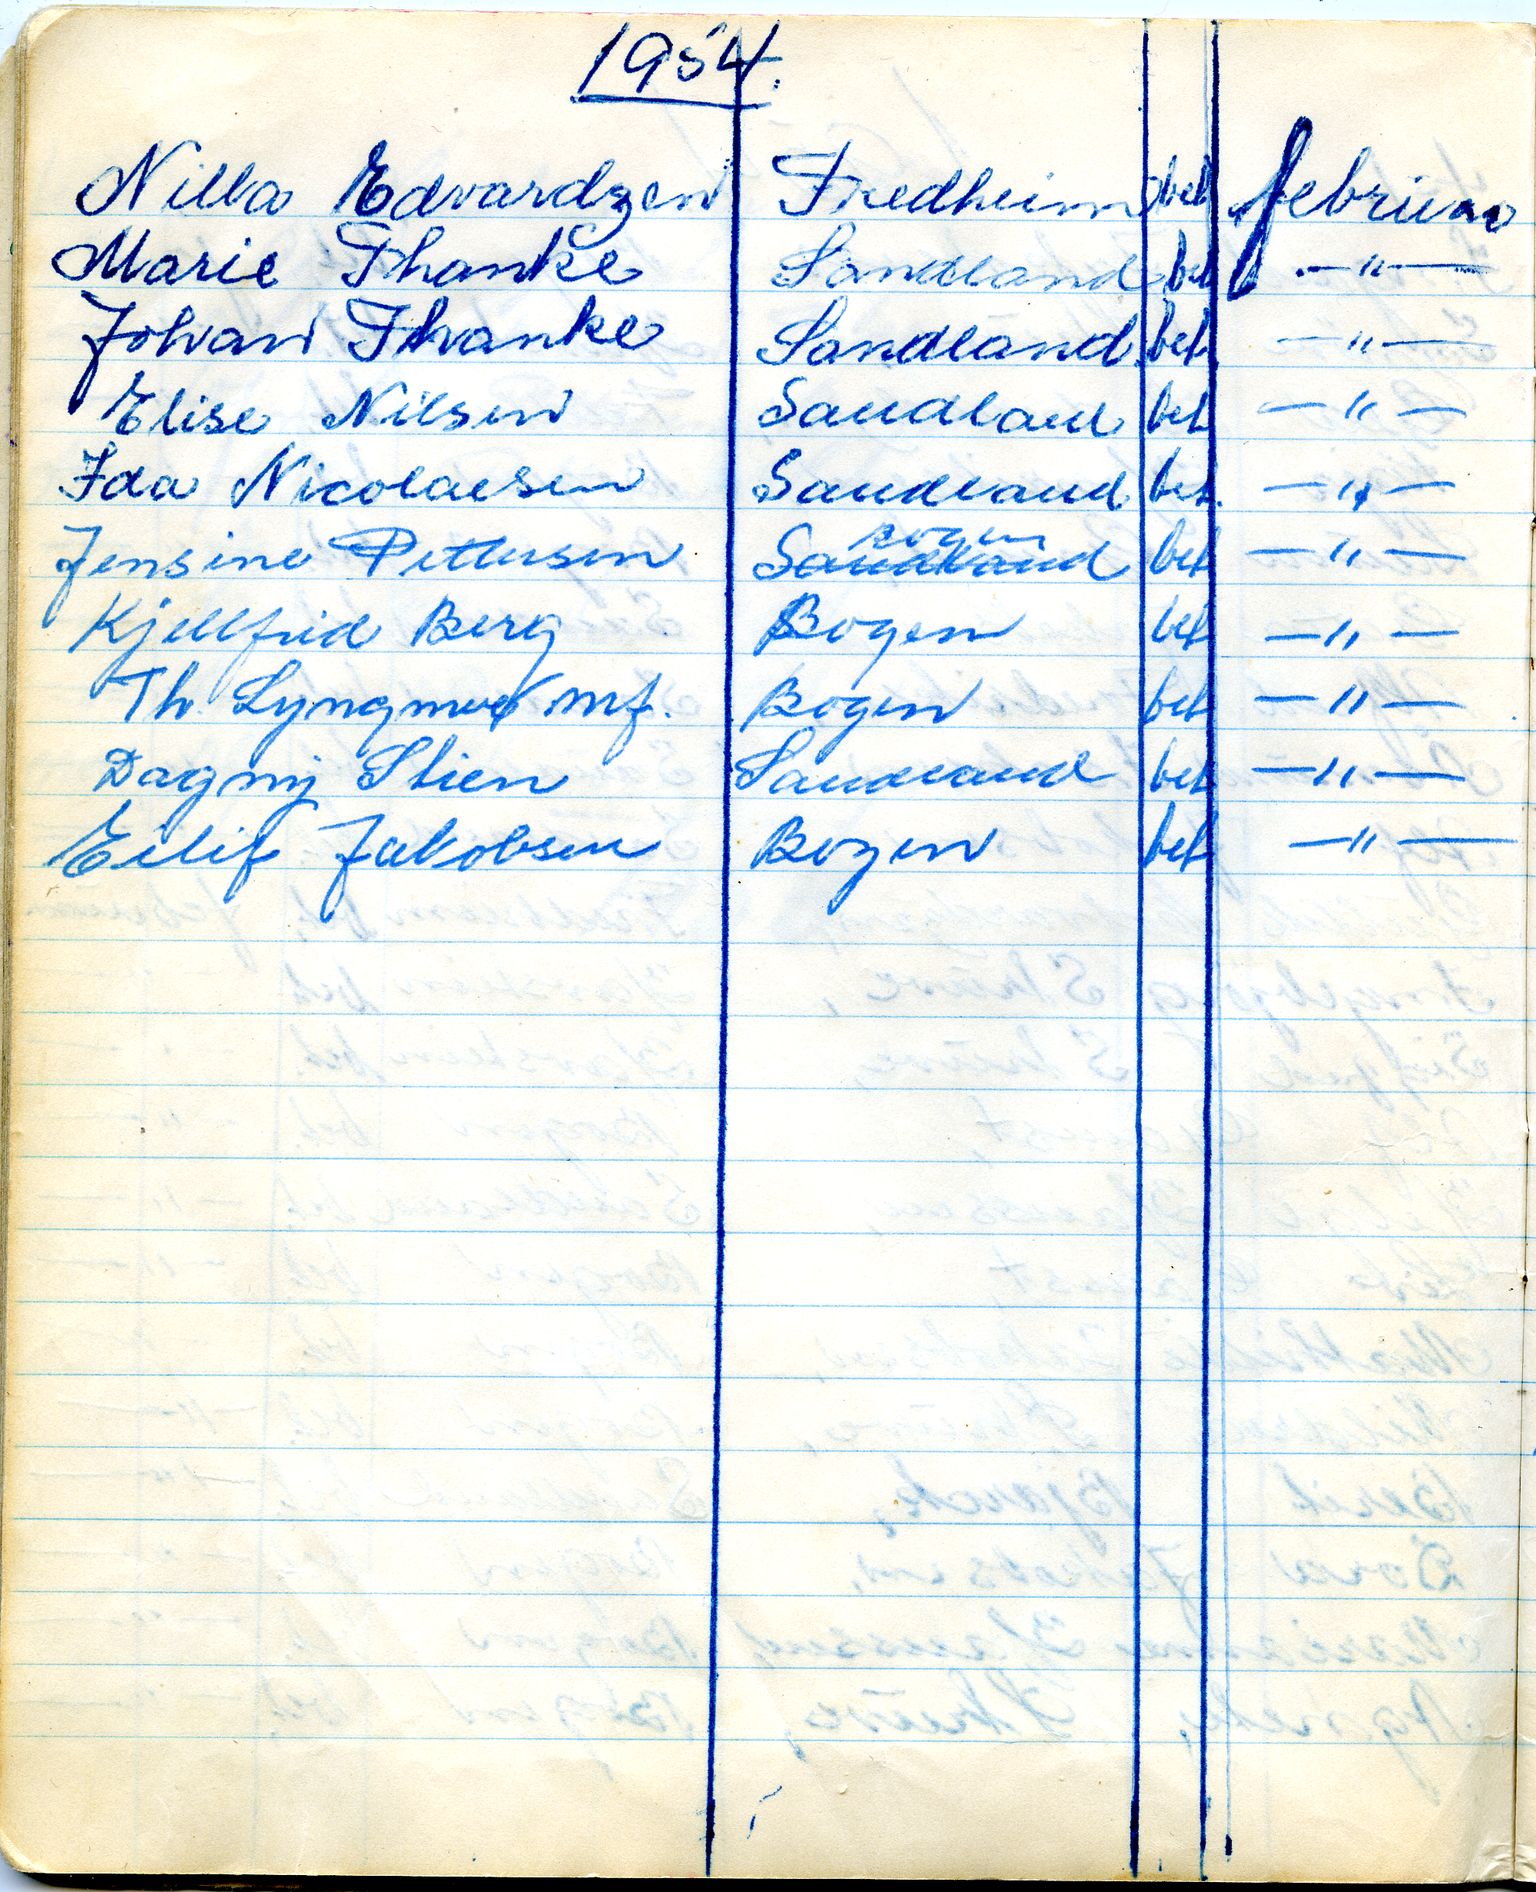 1954.
Nilla Edvardzen Fredheim bet februar
Marie Thanke Sandland bet — " —
Johan Thanke Sandland bet. — " —
Elise Nilsen Sandland bet — " —
Ida Nicolaesen Sandland bet. — " —
Bogen
Jensine Pettersen Sandland bet — " —
Kjellfrid Berg Bogen bet — " —
Th Lyngmoe mf. Bogen bet — " —
Dagny Stien Sandland bet — " —
Eilif Jakobsen Bogen bet — " —